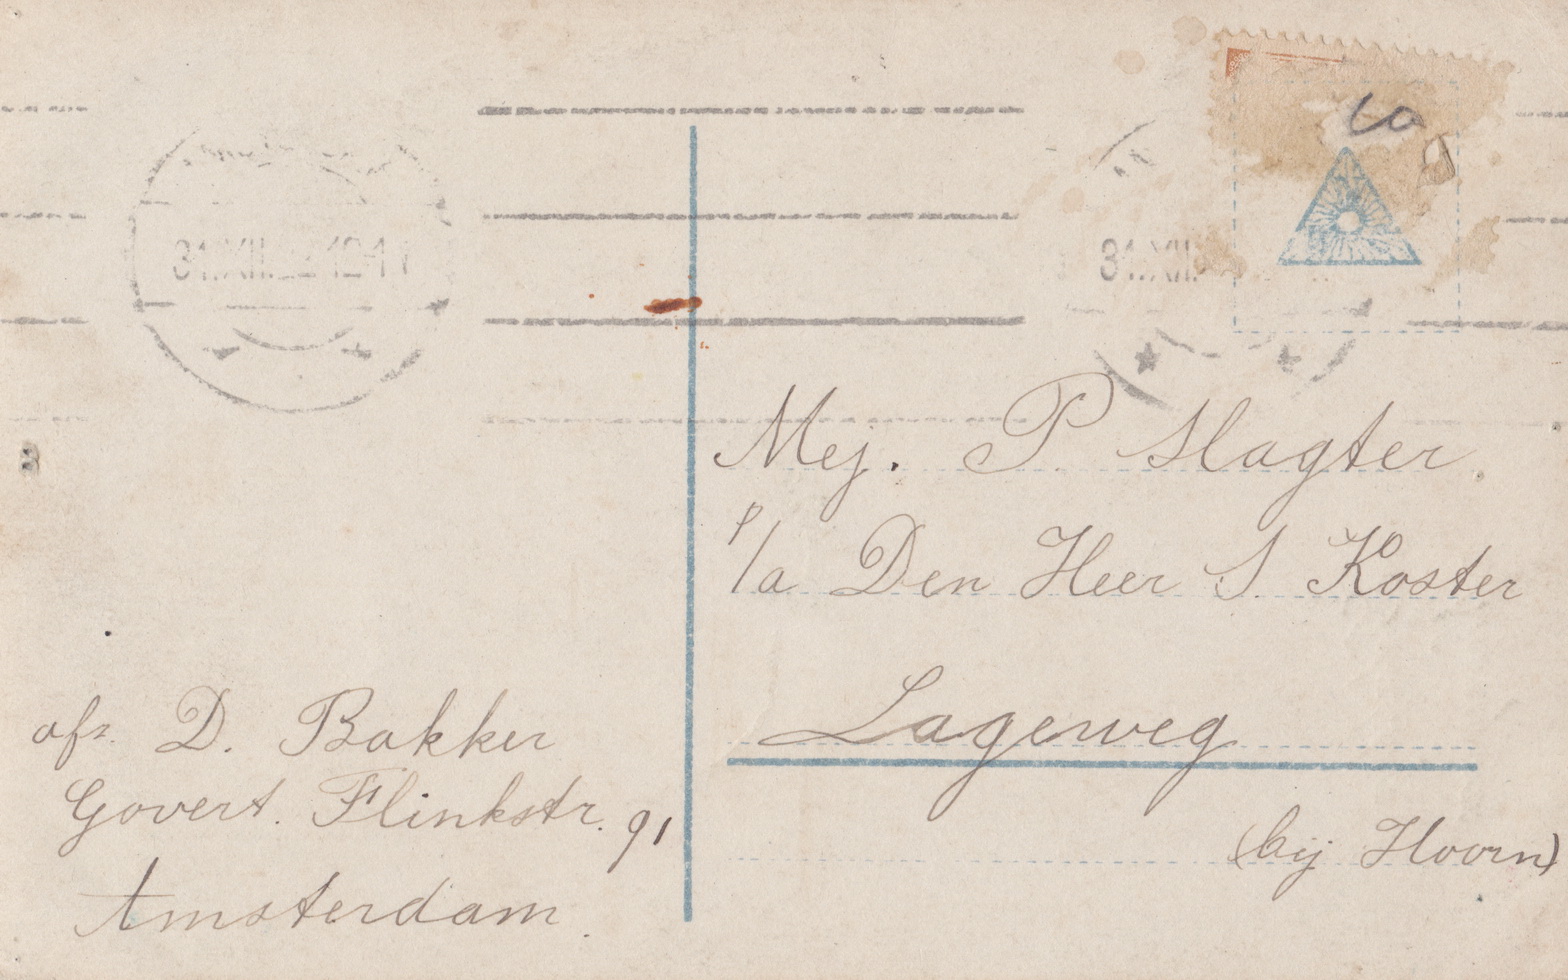 31.XII.
31.XII.
Mej. P Slagter.
p/a Den Heer S. Koster
Lageweg
(bij Hoorn)
afz. D. Bakker
Govert. Flinkstr. 91
Amsterdam.